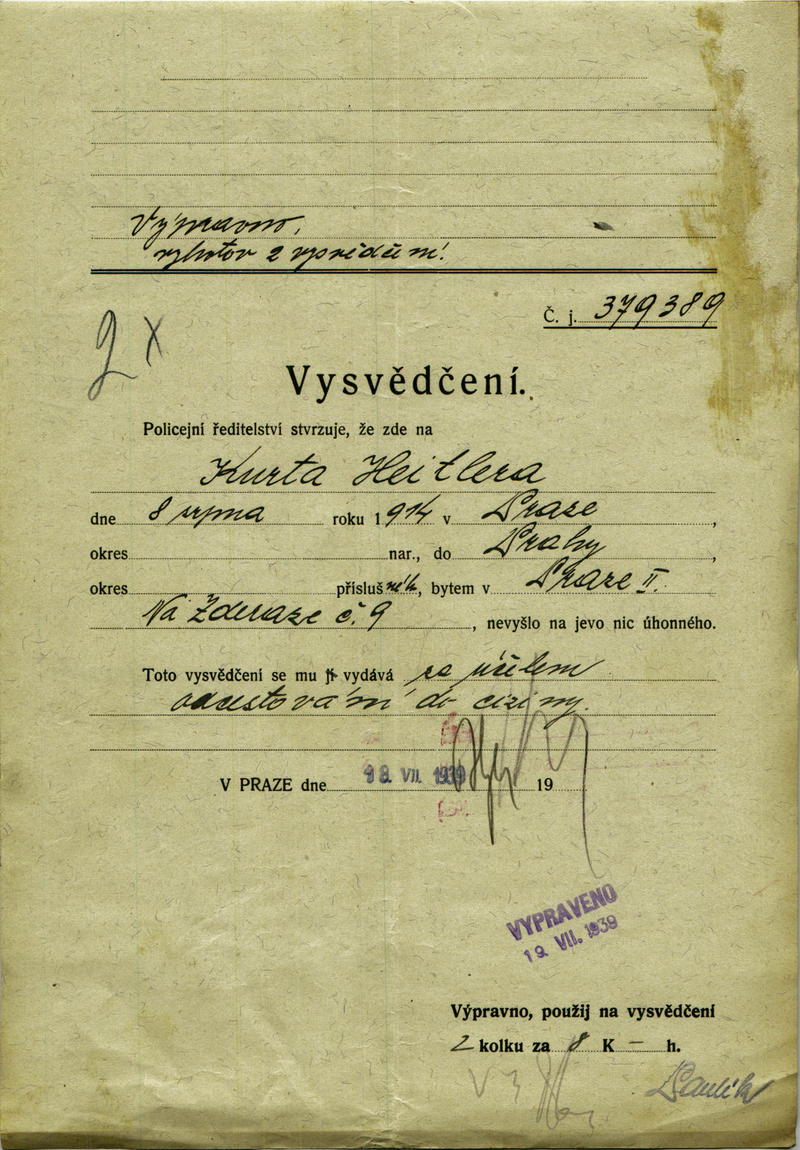 Výpravno,
vyhotov 2 vysvědčení!
Č. j. 379389
2 x
Vysvědčení.
Policejní ředitelství stvrzuje, že zde na
Kurta Heitlera
dne 8 srpna roku 1914 v Praze,
okres nar., do Prahy,
okres příslušného, bytem v Praze II.
Na Zderaze č. 9, nevyšlo na jevo nic úhonného.
Toto vysvědčení se mu jí vydává za účelem
odcestování do ciziny.
V PRAZE dne 18. VII. 1939 19
VYPRAVENO
19. VII. 1939
Výpravno, použij na vysvědčení
2 kolku za 8 K — h.